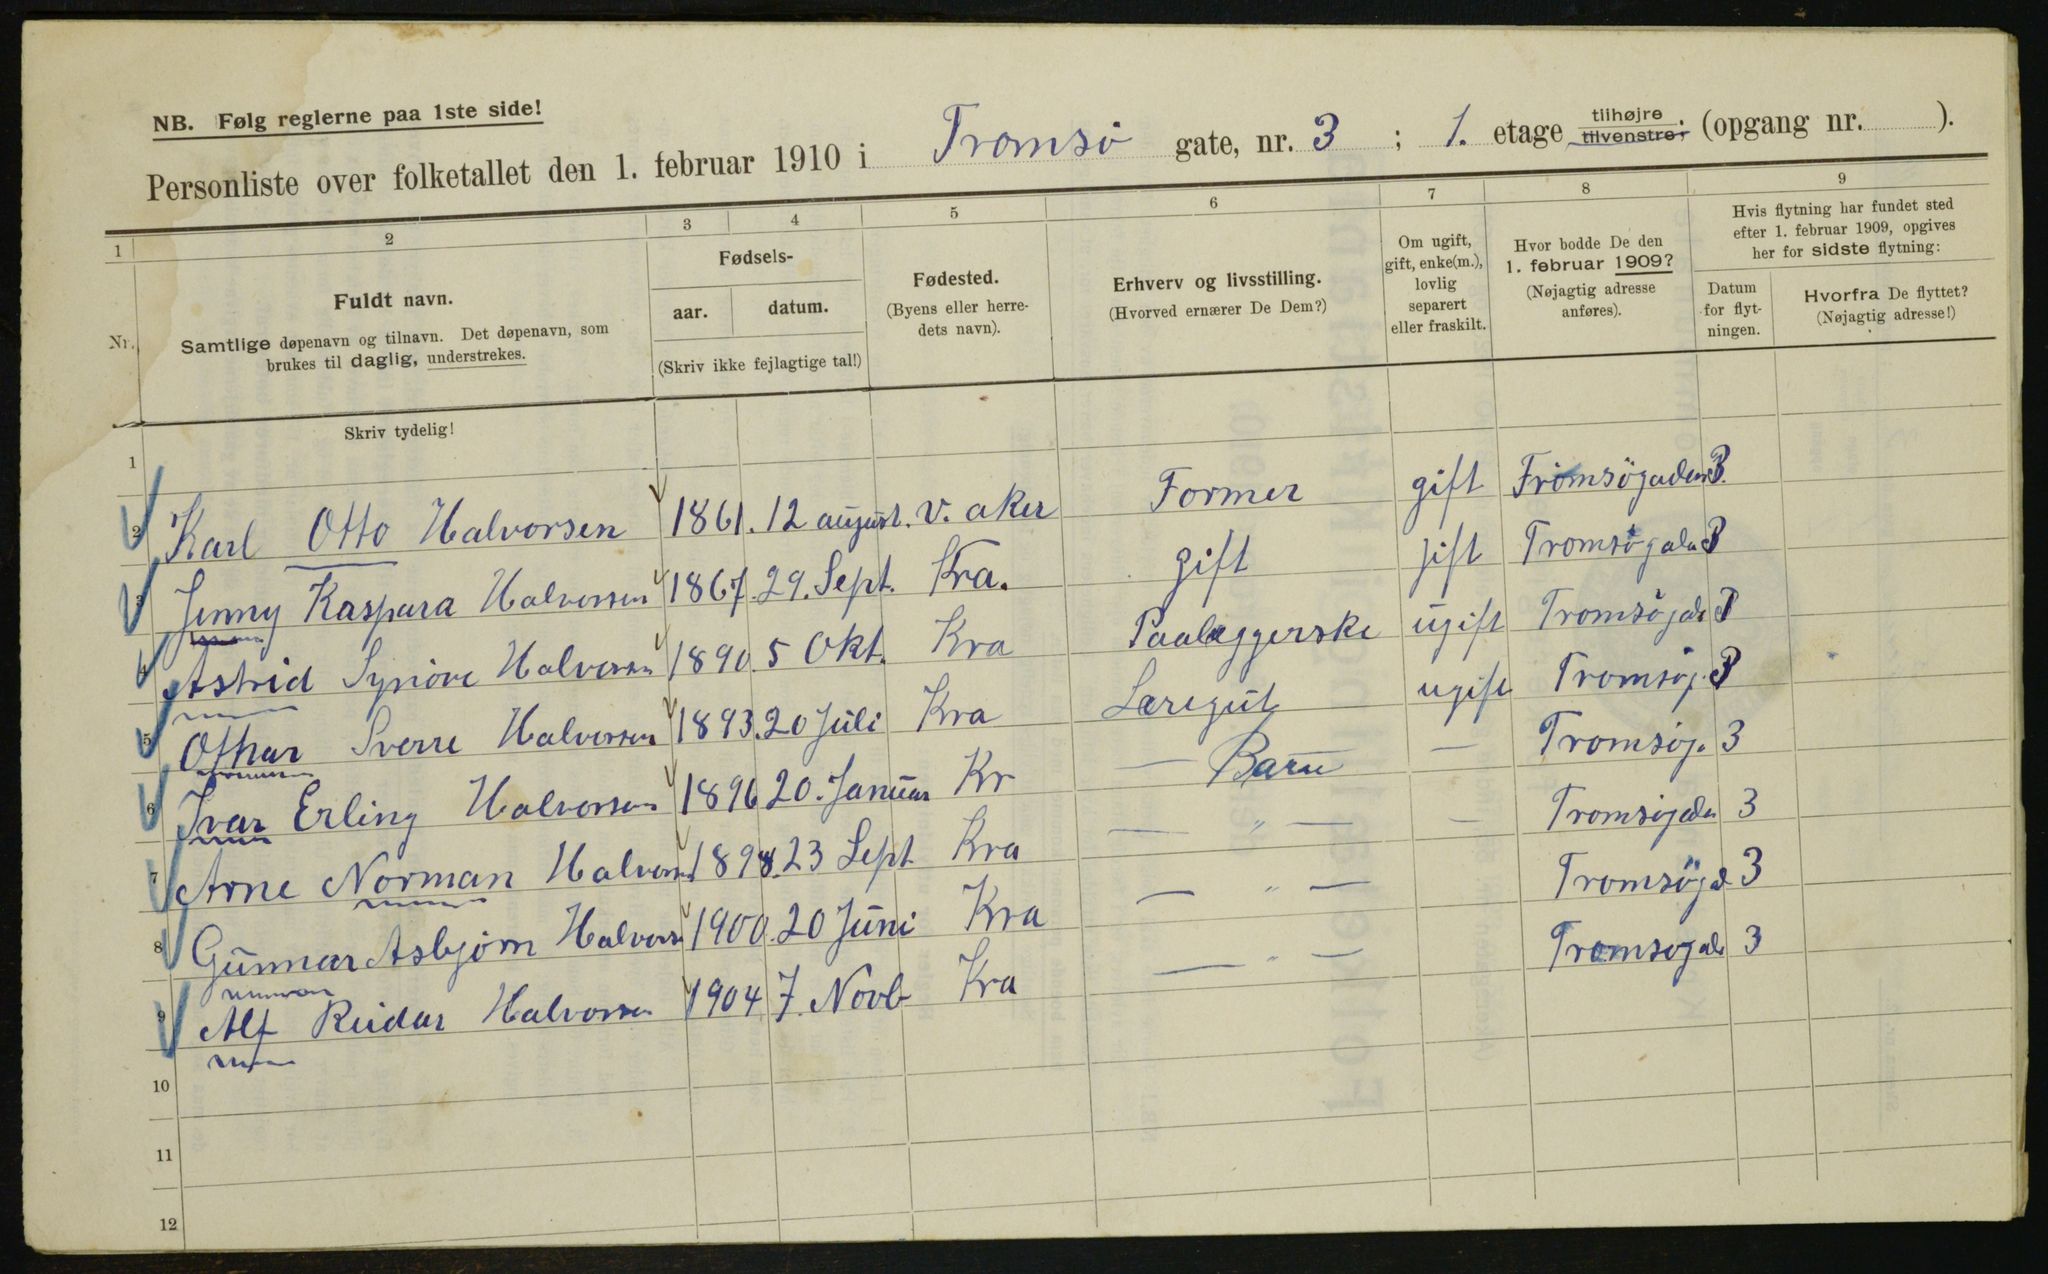 NB. Følg reglerne paa 1ste side!
Personliste over folketallet den 1. februar 1910 i Tromsö gate, nr. 3 ; 1. etage tilhøjre. tilvenstre. (opgang nr. ).
1 2 3 4 5 6 7 8 9
Nr.
Fuldt navn.
Samtlige døpenavn og tilnavn. Det døpenavn, som
brukes til daglig, understrekes.
Skriv tydelig!
Fødsels-
aar. datum.
(Skriv ikke fejlagtige tal!)
Fødested.
(Byens eller herre-
dets navn).
Erhverv og livsstilling.
(Hvorved ernærer De Dem?)
Om ugift,
gift, enke(m.),
lovlig
separert
eller fraskilt.
Hvor bodde De den
1. februar 1909?
(Nøjagtig adresse
anføres).
Hvis flytning har fundet sted
efter 1. februar 1909, opgives
her for sidste flytning:
Datum
for flyt-
ningen.
Hvorfra De flyttet?
(Nøjagtig adresse!)
1
2 Karl Otto Halvorsen 1861. 12 august. V. aker Former gift Tromsögaden 3.
3 Jenny Kaspara Halvorsen 1867. 29. Sept. Kra. gift gift Tromsögaden 3
4 Astrid Synöve Halvorsen 1890. 5 Okt. Kra Paalæggerske ugift Tromsögade 3
5 Othar Sverre Halvorsen 1893. 20 Juli Kra Læregut ugift Tromsög. 3
6 Ivar Erling Halvorsen 1896 20. Januar Kr — Barn — — Tromsög. 3
7 Arne Norman Halvorsen 1898. 23 Sept Kra — " — — Tromsögaden 3
8 Gunnar Asbjörn Halvors 1900. 20 Juni Kra — " — Tromsögd 3
9 Alf Reidar Halvorsen 1904 7. Novb Kra — " — Tromsogade 3
10
11
12